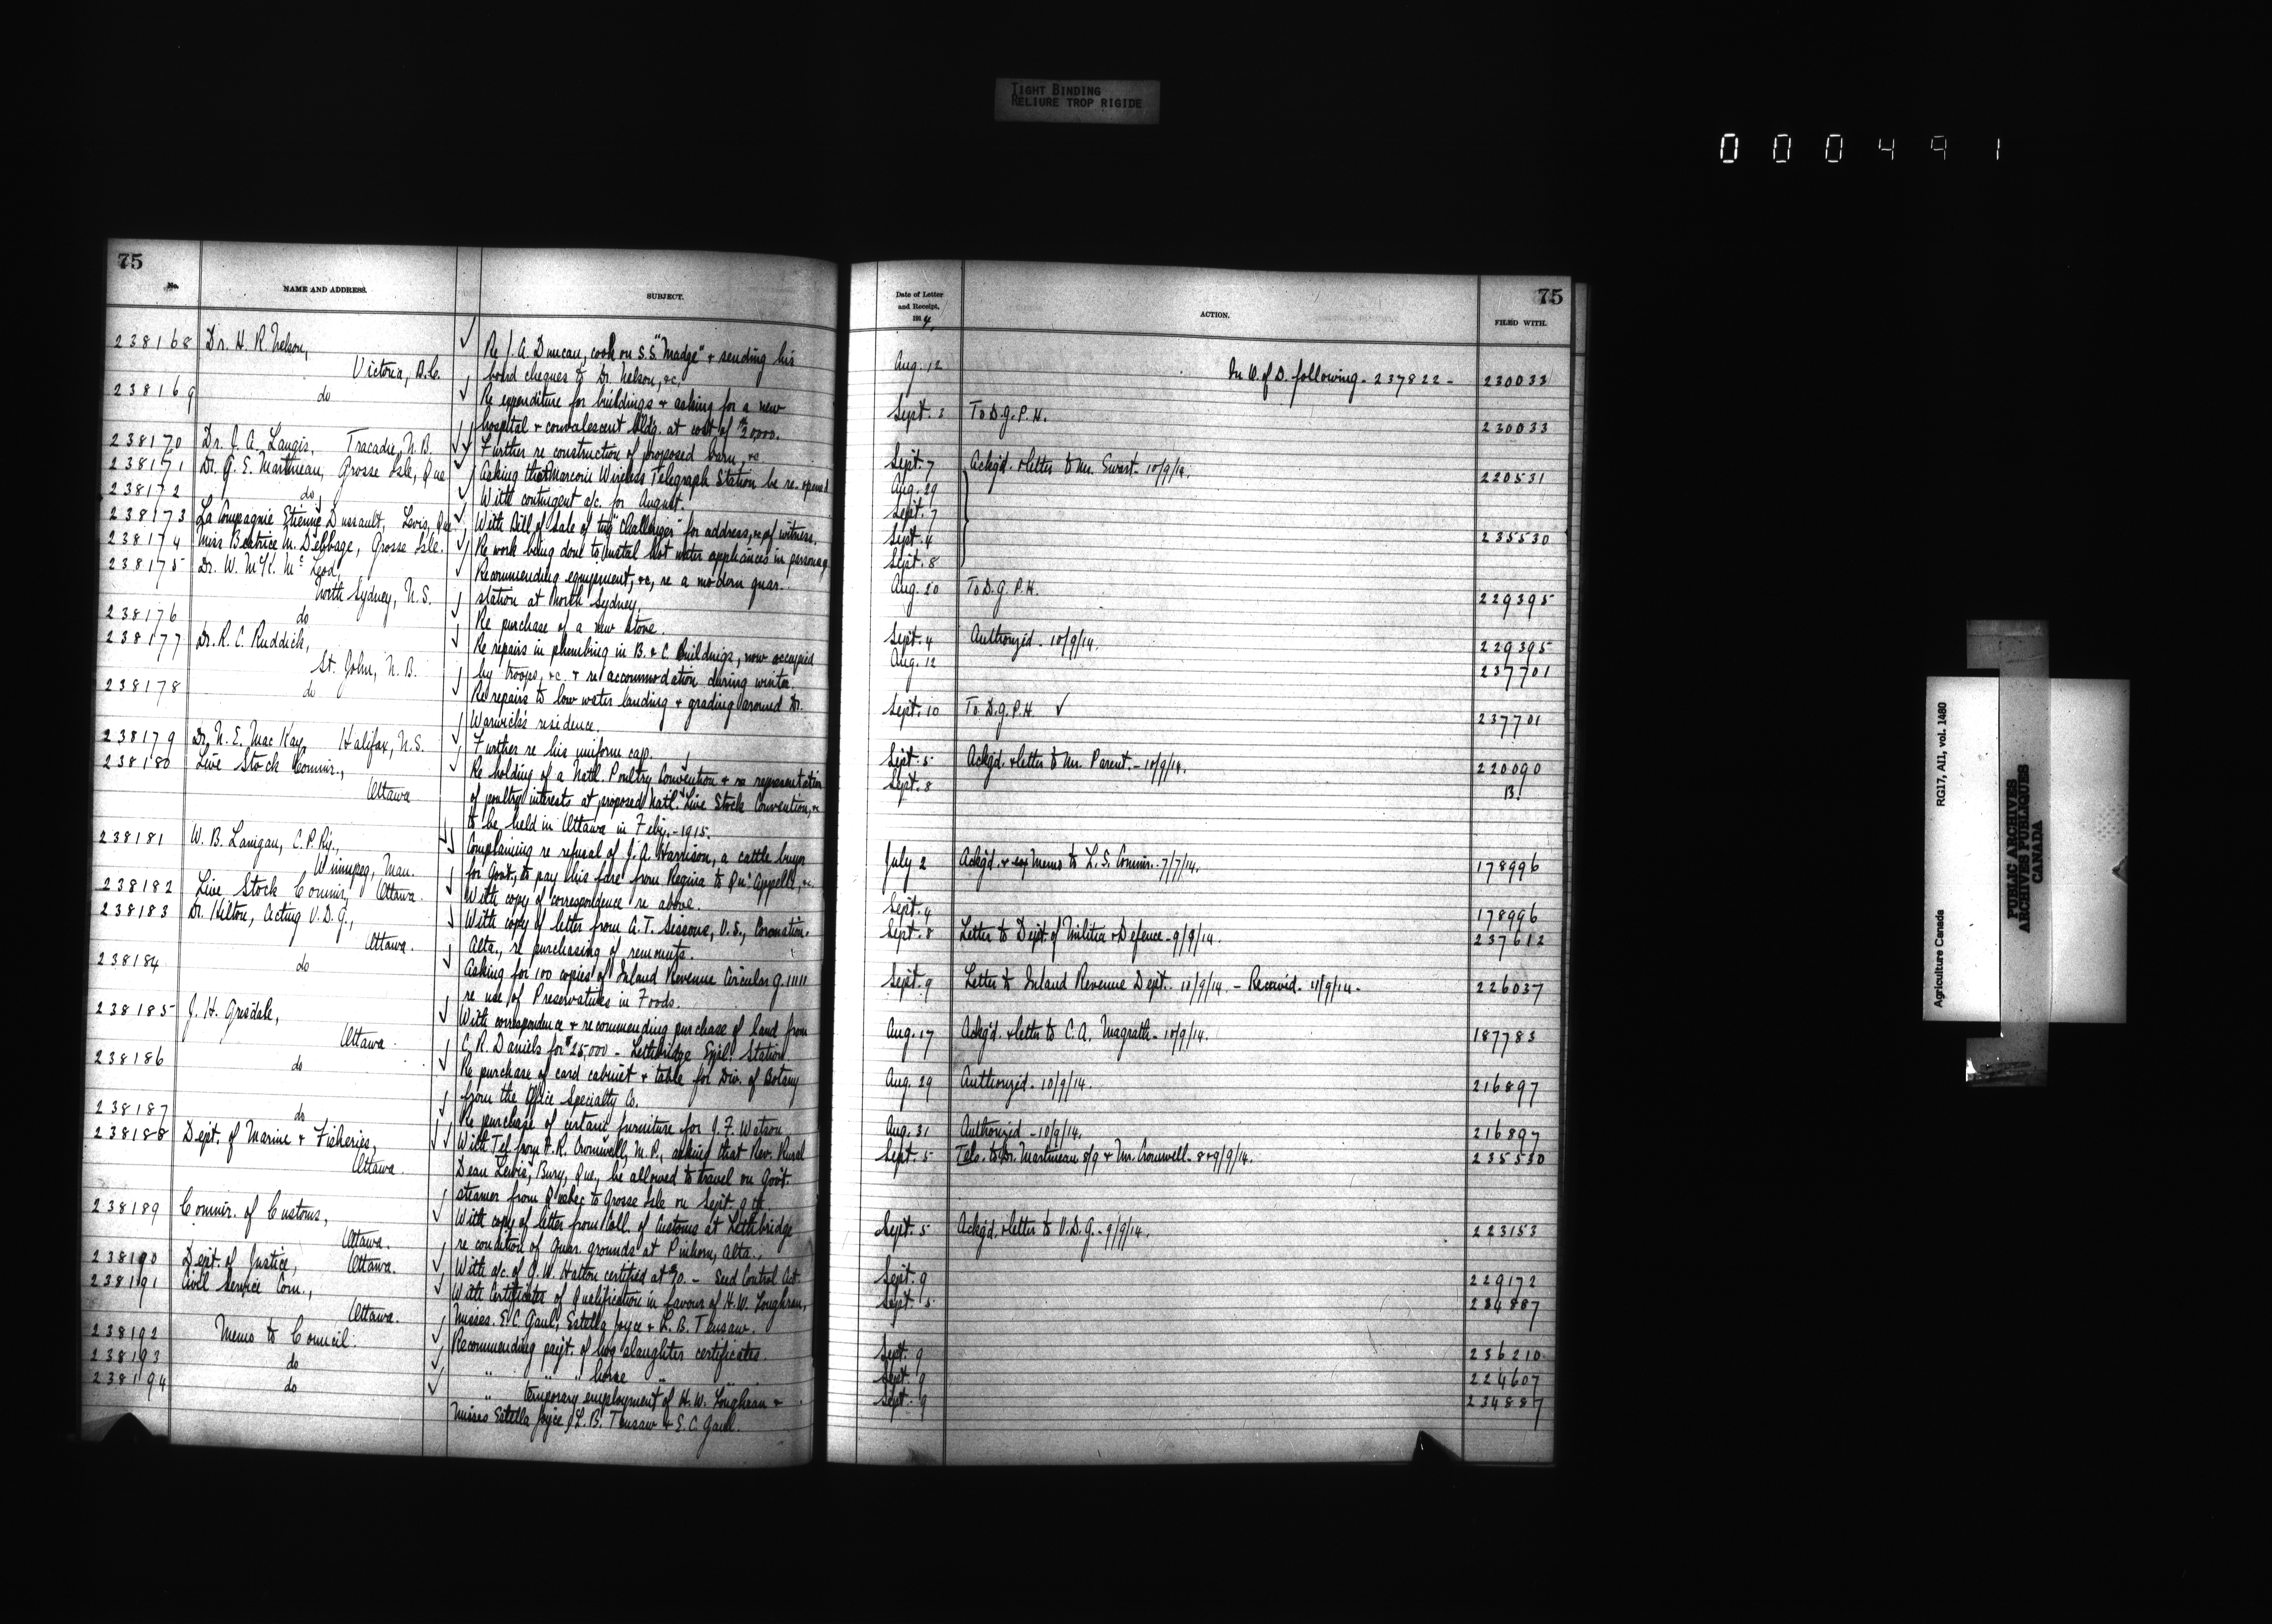 TIGHT BINDING
RELIURE TROP RIGIDE
000491
75
No.
NAME AND ADDRESS.
SUBJECT.
238168 Dr. H. R. Nelson,
Victoria, B.C.
Re J. A. Duncan, cook on S.S. "Madge" & sending his
bond cheques to Dr. Nelson, &c.
238169 do
Re expenditure for buildings & asking for a new
hospital & convalescent bldg. at cost of $20,000.
238170 Dr. J. A. Langis, Tracadie, N.B. Further re construction of proposed barn, &c
238171 Dr. G. E. Martineau, Grosse Isle, Que Asking that Marconi Wireless Telegraph Station be re-opened
238172 do With contingent a/c. for August.
238173 La Compagnie Etienne Dussault, Levis, Que With Bill of Sale of tug "Challenger" for address, &c of witness.
238174 Miss Beatrice M. Debbage, Grosse Isle. Re work being done to instal hot water appliances in parsonage
238175 Dr. W. McK. McLeod,
North Sydney, N.S.
Recommending equipment, &c, re a modern quar.
station at North Sydney.
238176 do Re purchase of a new stove.
238177 Dr. R. C. Ruddick,
St. John, N.B.
Re repairs in plumbing in B. & C Buildings, now occupied
by troops, &c. & re accommodation during winter.
238178 do
Re repairs to low water landing & grading around Dr.
Warwick's residence.
238179 Dr. N. E. MacKay, Halifax, N.S. Further re his uniform cap.
238180 Live Stock Commr.,
Ottawa
Re holding of a Natl. Poultry Convention & re representation
of poultry interests at proposed Natl. Live Stock Convention, &c
to be held in Ottawa in Feby. - 1915.
238181 W. B. Lanigan, C.P.Ry.,
Winnipeg, Man.
Complaining re refusal of J. A. Harrison, a cattle buyer
for Govt., to pay his fare from Regina to Qu'Appelle, &c.
238182 Live Stock Commr, Ottawa. With copy of correspondence re above.
238183 Dr. Hilton, Acting V.D.G.,
Ottawa.
With copy of letter from A. T. Sissons, V.S., Coronation,
Alta., re purchasing of remounts.
238184 do
Asking for 100 copies of Inland Revenue Circular G. 1111
re use of Preservatives in Foods.
238185 J. H. Grisdale,
Ottawa.
With correspondence & recommending purchase of land from
C. R. Daniels for $25,000 - Lethbridge Expl. Station.
238186 do
Re purchase of card cabinet & table for Div. of Botany
from the Office Specialty Co.
238187 do Re purchase of certain furniture for J. F. Watson.
238188 Dept. of Marine & Fisheries,
Ottawa.
With Tel. from F. R. Cromwell, M.P., asking that Rev. Rural
Dean Lewis, Bury, Que., be allowed to travel on Govt.
steamer from Quebec to Grosse Isle on Sept. 9th
238189 Commr. of Customs,
Ottawa.
With copy of letter from Coll. of Customs at Lethbridge
re condition of quar. grounds at Pinhorn, Alta.
238190 Dept. of Justice, Ottawa. With a/c. of G. W. Hatton certified at $70. - Seed Control Act.
238191 Civil Service Com.,
Ottawa.
With Certificates of Qualification in favour of H. W. Loughran,
Misses. E. C. Gaul, Estella Joyce & L. B. Tensaw.
238192 Memo to Council. Recommending payt. of hog slaughter certificates.
238193 do " " " horse "
238194 do " temporary employment of H. W. Loughran &
Misses Estella Joyce, L. B. Tensaw & E. C. Gaul.
75
Date of Letter
and Receipt.
1914.
ACTION.
FILED WITH.
Aug. 12 In O. of D. following - 237822 - 230033
Sept. 3 To D.G.P.H. 230033
Sept. 7 Ackg'd. & letter to Mr. Ewart - 10/9/14. 220531
Aug. 29
Sept. 7
Sept. 4 235530
Sept. 8
Aug. 20 To D.G.P.H. 229395
Sept. 4 Authorized. 10/9/14. 229395
Aug. 12 237701
Sept. 10 To D.G.P.H. 237701
Sept. 5 Ackg'd. & letter to Mr. Parent. - 10/9/14. 220090
Sept. 8 B.
July 2 Ackg'd. & Memo to L. S. Commr. 7/7/14. 178996
Sept. 4 178996
Sept. 8 Letter to Dept. of Militia & Defence - 9/9/14. 237612
Sept. 9 Letter to Inland Revenue Dept. 10/9/14. - Received. 11/9/14. 226037
Aug. 17 Ackg'd. & letter to C. A. Magrath - 10/9/14. 187783
Aug. 29 Authorized. 10/9/14. 216897
Aug. 31 Authorized - 10/9/14. 216897
Sept. 5 Tels. to Dr. Martineau 8/9 & Mr. Cromwell - 8 & 9/9/14. 235530
Sept. 5 Ackg'd. & letter to V.D.G. - 9/9/14. 223153
Sept. 9 229172
Sept. 5 234887
Sept. 9 236210
Sept. 9 224607
Sept. 9 234887
Agriculture Canada RG17, AII, vol. 1480
PUBLIC ARCHIVES
ARCHIVES PUBLIQUES
CANADA